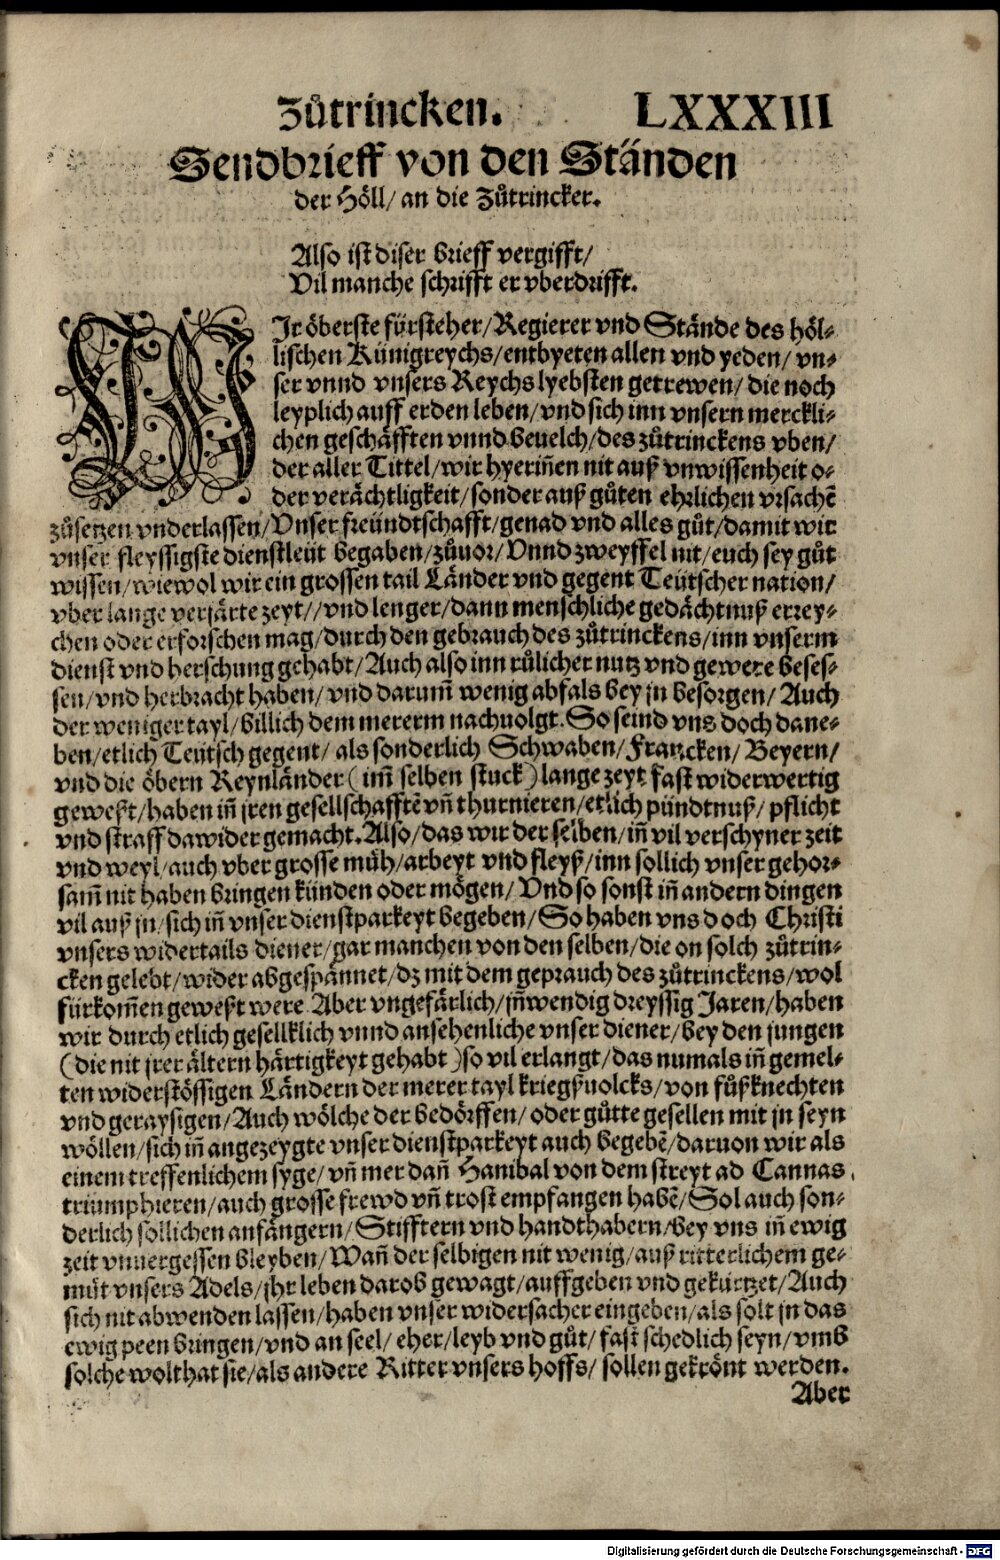 Zůtrincken. LXXXIII
Sendbrieff von den Ständen
der Höll/ an die Zůtrincker.
Also ist diser brieff vergifft/
Vil manche schrifft er vberdrifft.
WJr öberste fürsteher/Regierer vnd Stände des höl-
lischen Künigreychs/entbyeten allen vnd yeden/ vn-
ser vnnd vnsers Reychs lyebsten getrewen/ die noch
leyplich auff erden leben/ vnd sich inn vnsern merckli-
chen geschäfften vnnd beuelch/des zůtrinckens vben/
der aller Tittel/wir hyeriñen nit auß vnwissenheit o-
der verächtligkeit/sonder auß gůten ehrlichen vrsachẽ
zůsetzen vnderlassen/Vnser freündtschafft/genad vnd alles gůt/damit wir
vnser fleyssigste dienstleüt begaben/zůuor/Vnnd zweyffel nit/euch sey gůt
wissen/wiewol wir ein grossen tail Länder vnd gegent Teütscher nation/
vber lange verjärte zeyt//vnd lenger/dann menschliche gedächtnuß errey-
chen oder erforschen mag/durch den gebrauch des zůtrinckens/inn vnserm
dienst vnd herschung gehabt/Auch also inn růlicher nutz vnd gewere beses-
sen/vnd herbracht haben/vnd darum̃ wenig abfals bey jn besorgen/ Auch
der weniger tayl/billich dem mererm nachuolgt. So seind vns doch dane-
ben/etlich Teütsch gegent/ als sonderlich Schwaben/Francken/Beyern/
vnd die öbern Reynländer (im̃ selben stuck) lange zeyt fast widerwertig
geweßt/haben iñ jren gesellschafftẽ vñ thurnieren/etlich pündtnuß/ pflicht
vnd straff dawider gemacht. Also/das wir der selben/iñ vil verschyner zeit
vnd weyl/auch vber grosse müh/arbeyt vnd fleyß/inn sollich vnser gehor-
sam̃ nit haben bringen künden oder mögen/Vnd so sonst iñ andern dingen
vil auß jn/sich iñ vnser dienstparkeyt begeben/So haben vns doch Christi
vnsers widertails diener/gar manchen von den selben/die on solch zůtrin-
cken gelebt/wider abgespännet/dz mit dem geprauch des zůtrinckens/wol
fürkom̃en geweßt were. Aber vngefärlich/jñwendig dreyssig Jaren/haben
wir durch etlich gesellklich vnnd ansehenliche vnser diener/bey den jungen
(die nit jrer ältern härtigkeyt gehabt) so vil erlangt/das numals iñ gemel-
ten widerstössigen Ländern der merer tayl kriegßuolcks/von fůßknechten
vnd geraysigen/Auch wölche der bedörffen/oder gůtte gesellen mit jn seyn
wöllen/sich iñ angezeygte vnser dienstparkeyt auch begebẽ/daruon wir als
einem treffenlichem syge/vñ mer dañ Hanibal von dem streyt ad Cannas
triumphieren/auch grosse frewd vñ trost empfangen habẽ/Sol auch son-
derlich sollichen anfängern/Stifftern vnd handthabern/bey vns iñ ewig
zeit vnuergessen bleyben/Wañ der selbigen nit wenig/auß ritterlichem ge-
müt vnsers Adels/jhr leben darob gewagt/auffgeben vnd gekürtzet/Auch
sich nit abwenden lassen/haben vnser widersacher eingeben/als solt jn das
ewig peen bringen/vnd an seel/ eher/leyb vnd gůt/fast schedlich seyn/vmb
solche wolthat sie/als andere Ritter vnsers hoffs/sollen gekrönt werden.
Aber
Digitalisierung gefördert durch die Deutsche Forschungsgemeinschaft - DFG